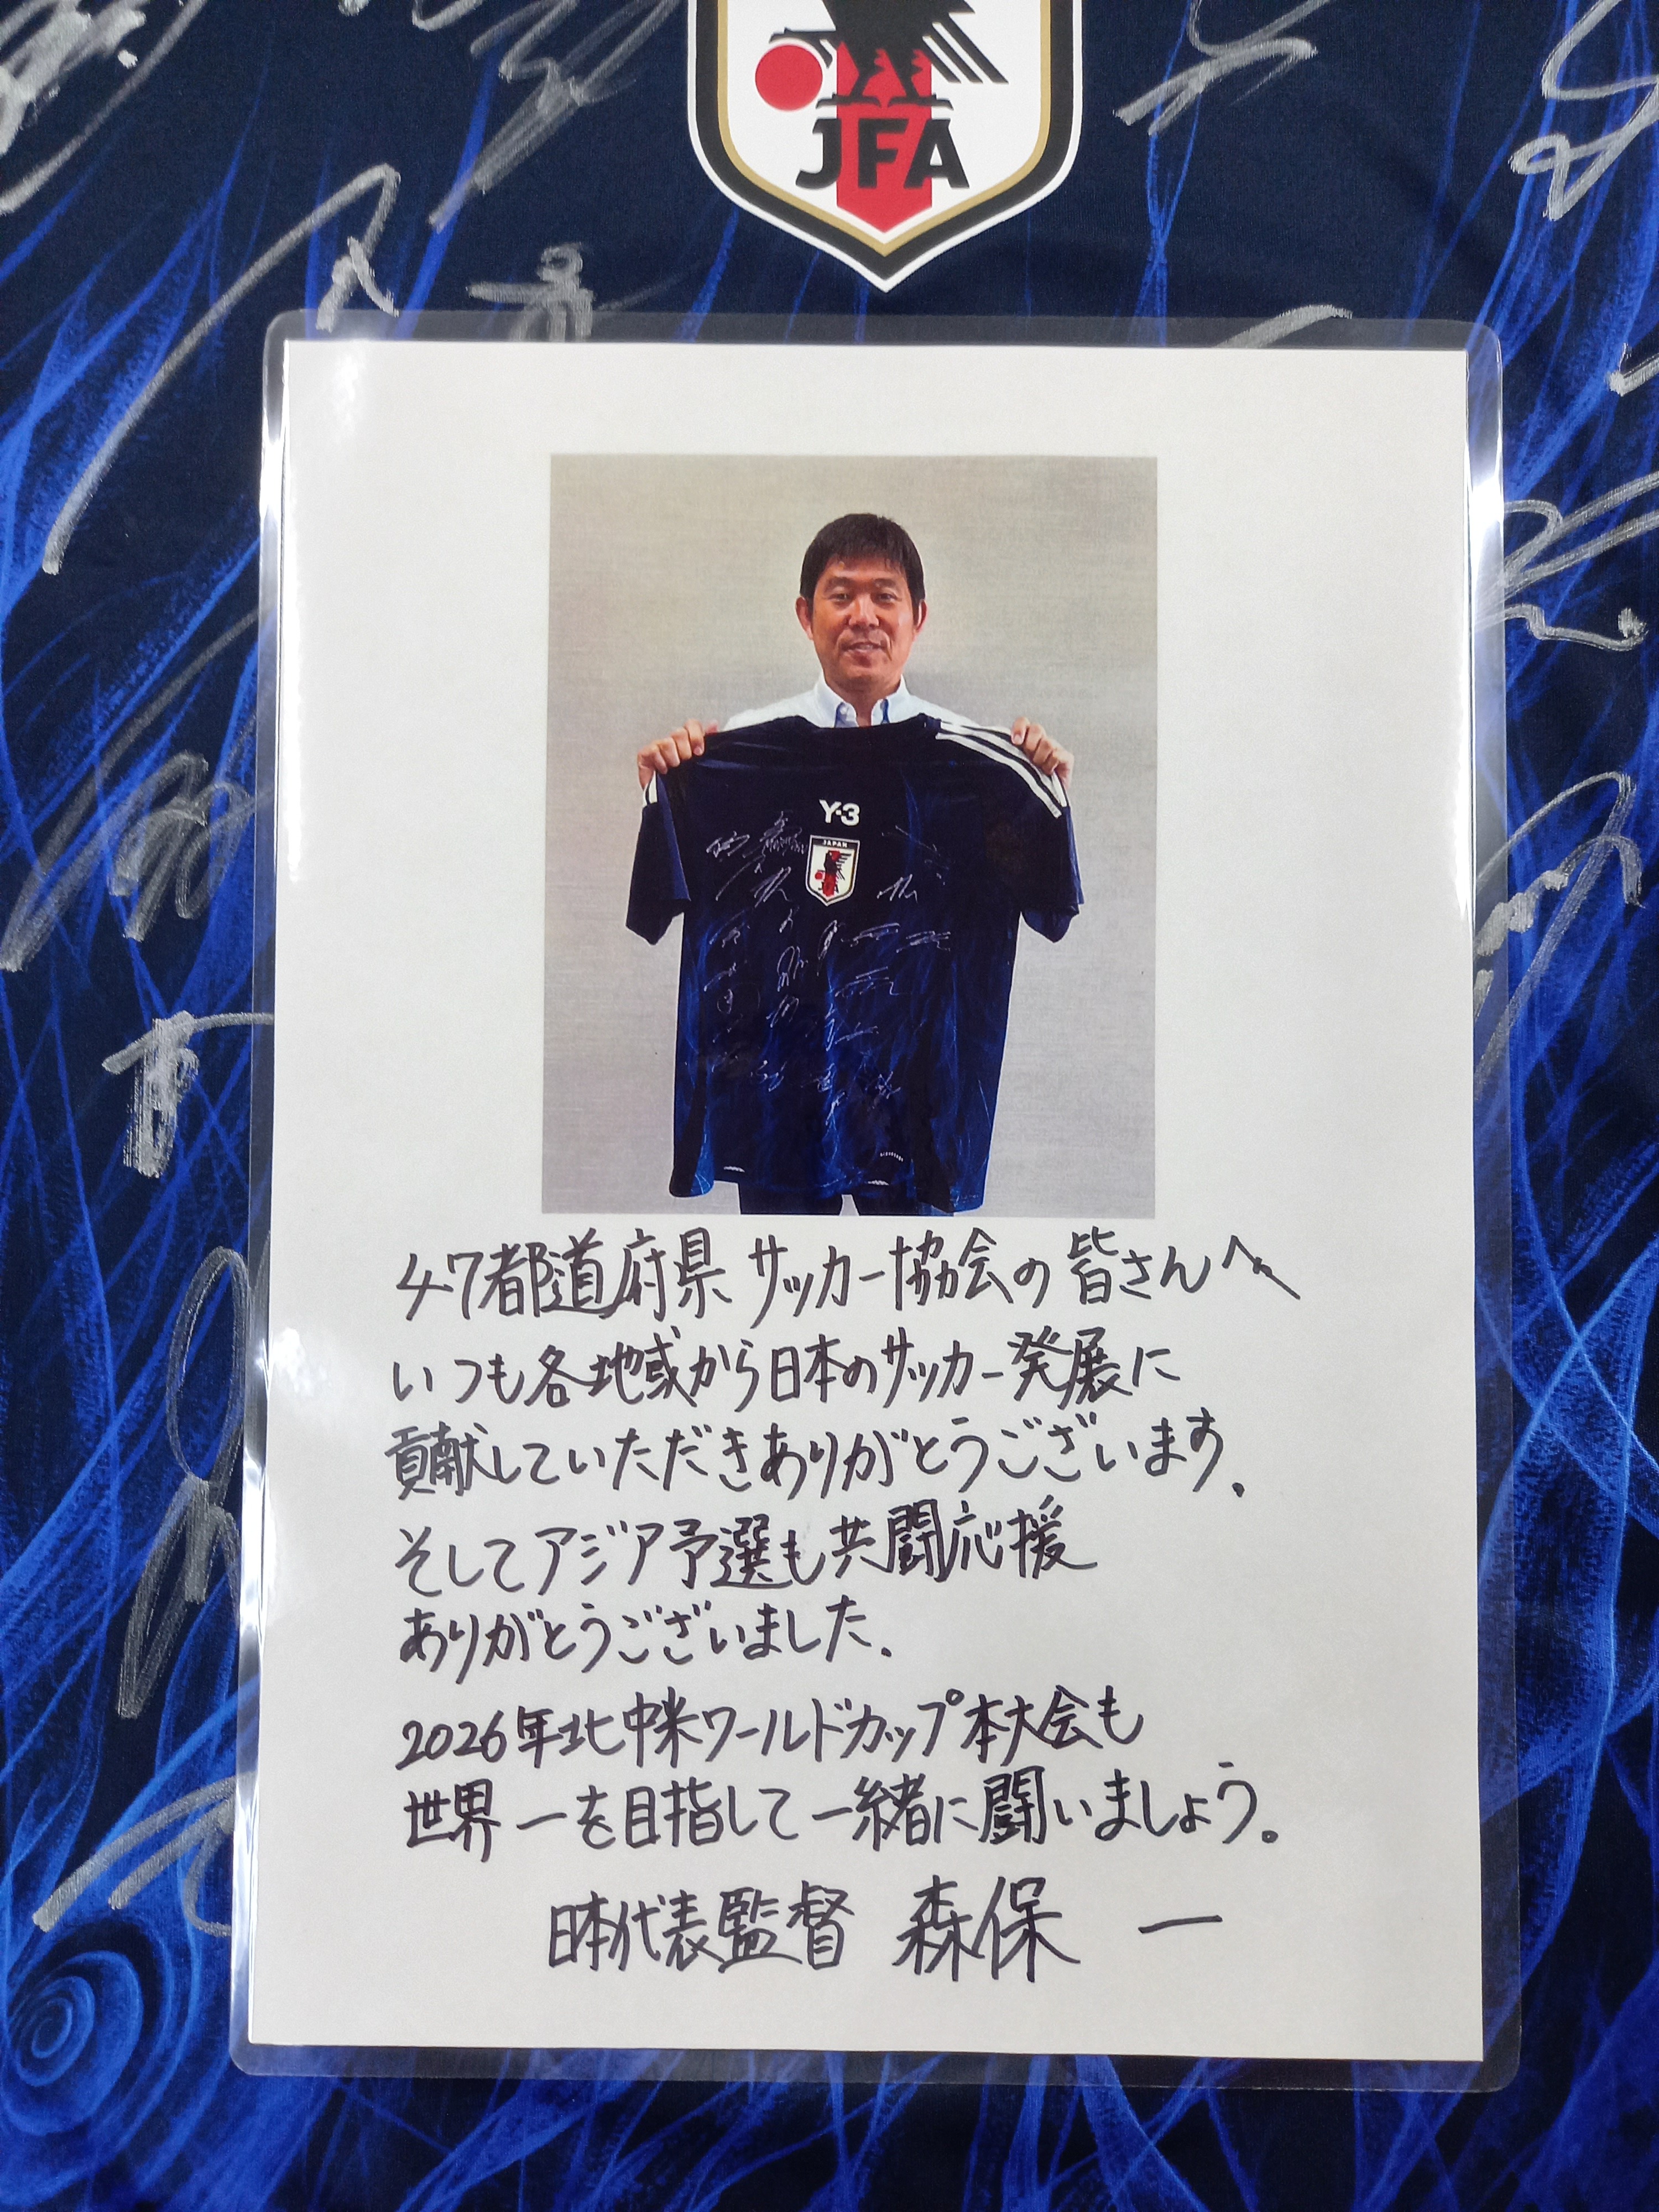 JFA
Y-3
JAPAN
47都道府県 サッカー協会の皆さんへ
いつも各地域から日本のサッカー発展に
貢献していただきありがとうございます.
そしてアジア予選も共闘応援
ありがとうございました.
2026年北中米ワールドカップ本大会も
世界一を目指して一緒に闘いましょう。
日本代表監督 森保 一